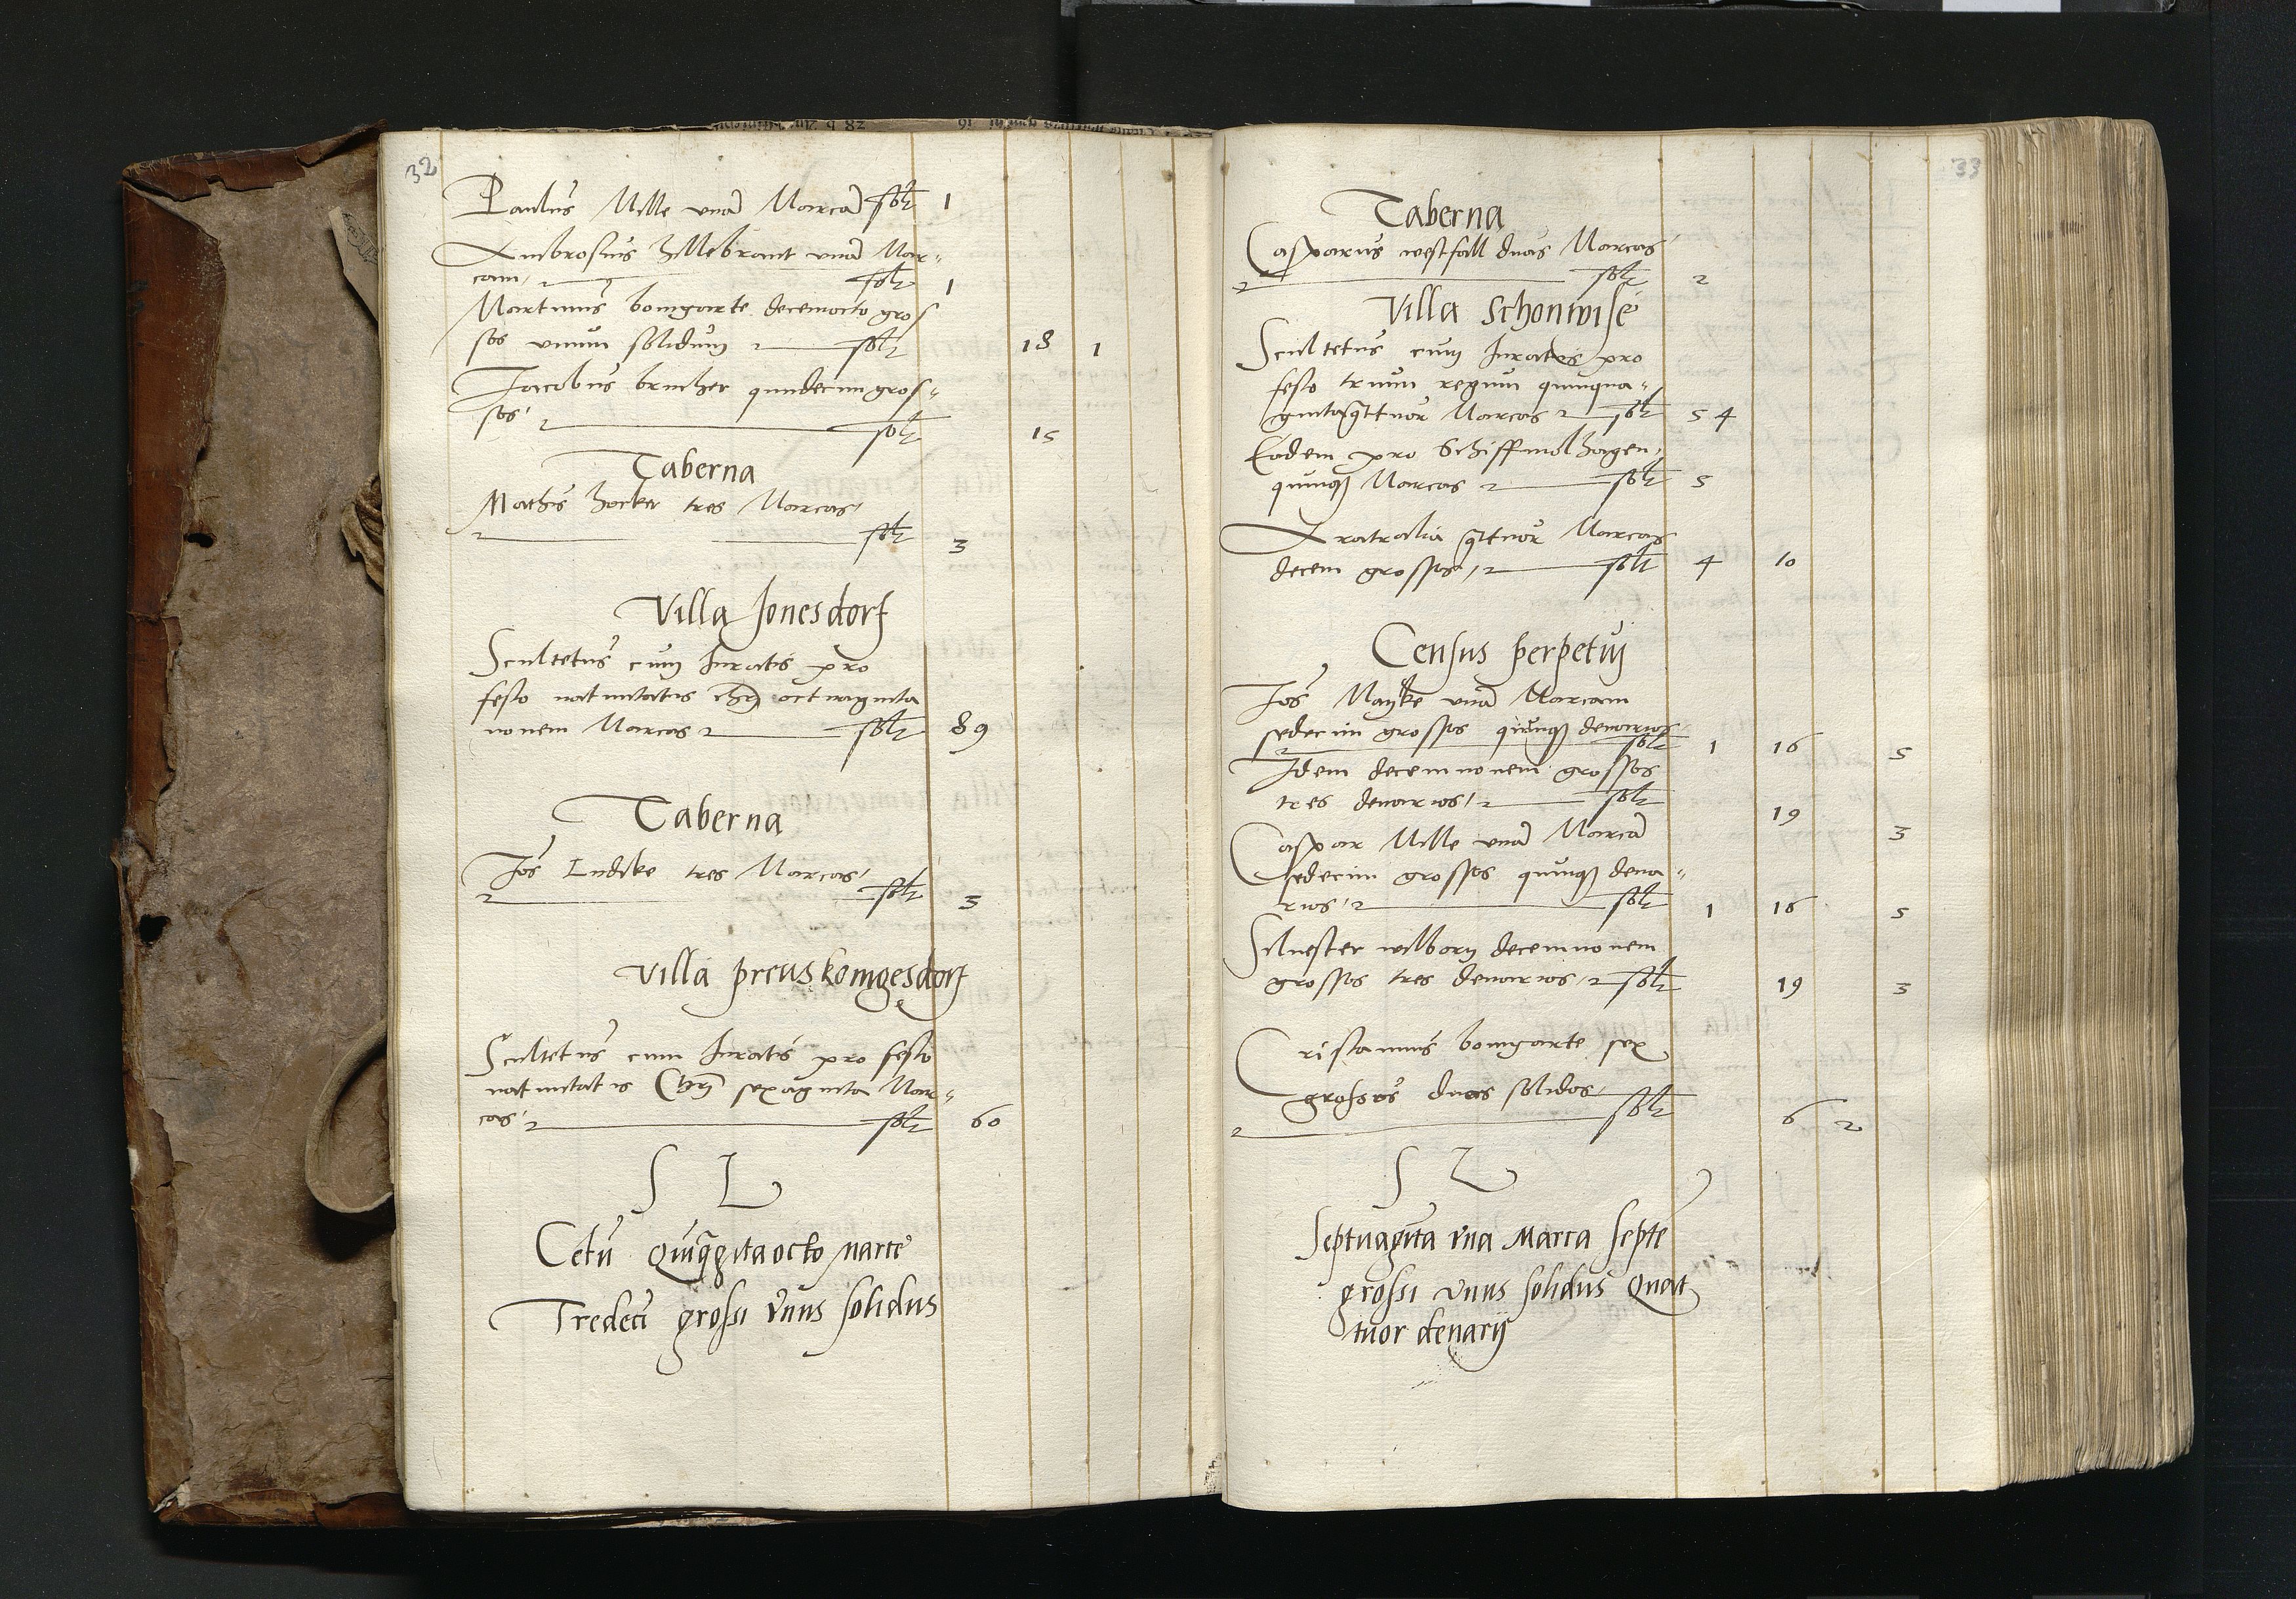 32
Paulus Mille vnā Marcā solt 1
Ambrosius hillebrant vnā Mar„
cam solt 1
Martinus bomgarte decemocto gros
sos vnum solidum solt 18 1
Jacobus brucher quindecim gros„
sos solt 15
Taberna
Mathis hocker tres Marcas
solt 3
Villa Jonesdorf
Scultetus cum Juratis pro
festo natiuitatis chrī octuaginta
nouem Marcas solt 89
Taberna
Jos Ludike tres Marcas
solt 3
Villa preuskonigesdorf
Scultetus cum Juratis pro festo
natiuitatis Chrī sexaginta Mar„
cas solt 60
S L
Cētū Quīq̄gītaocto marce
Tredecī grossi vnus solidus
33
Taberna
Casparus westfall duas Marcas
solt 2
Villa Schonwise
Scultetus cum Juratos pro
festo trium regum quinqua„
gintaq̄ttuor Marcas solt 54
Eodem pro Schiffmolhagen
quinq Marcas solt 5
Aratralia q̄ttuor Marcas
decem grossos solt 4 10
Census perpetuij
Jos Mayke vnā Marcam
sedecim grossos quinq denarios
solt 1 16 5
Idem decemnouem grossos
tres denarios solt 19 3
Caspar Mille vnā Marcā
sedecim grossos quinq dena„
rios solt 1 16 5
Siluester wilborn decemnouem
grossos tres denarios solt 19 3
Cristannus bomgarte sex
grossos duos solidos
solt 6 2
S L
Septuagīta vna Marca septē
grossi vnus solidus Quat
tuor denarij